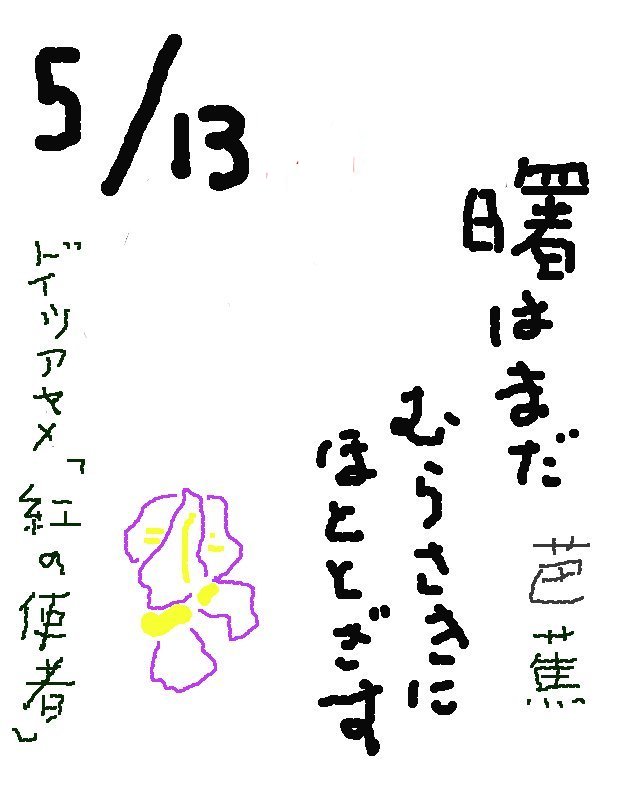 5/13
曙はまだ
むらさきに
ほととぎす
芭蕉
ドイツアヤメ「紅の使者」